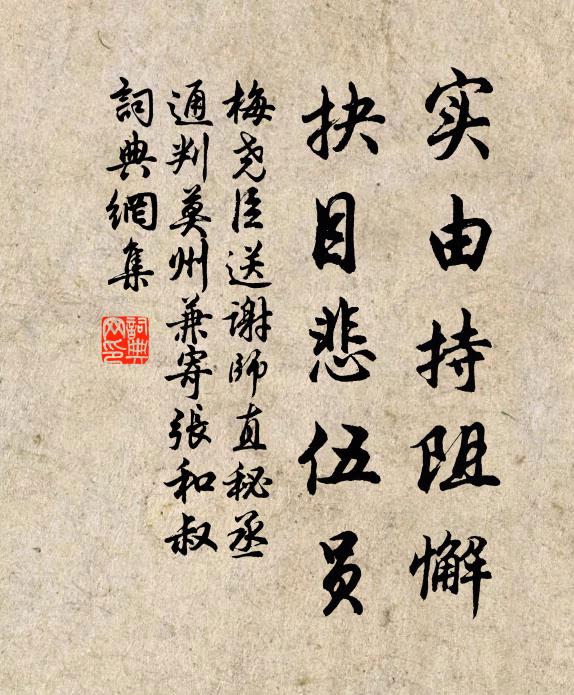 实由持阻懈
抉目悲伍员
梅尧臣送谢师直秘丞
通判莫州兼寄张和叔
詞典網集
詞典
网印